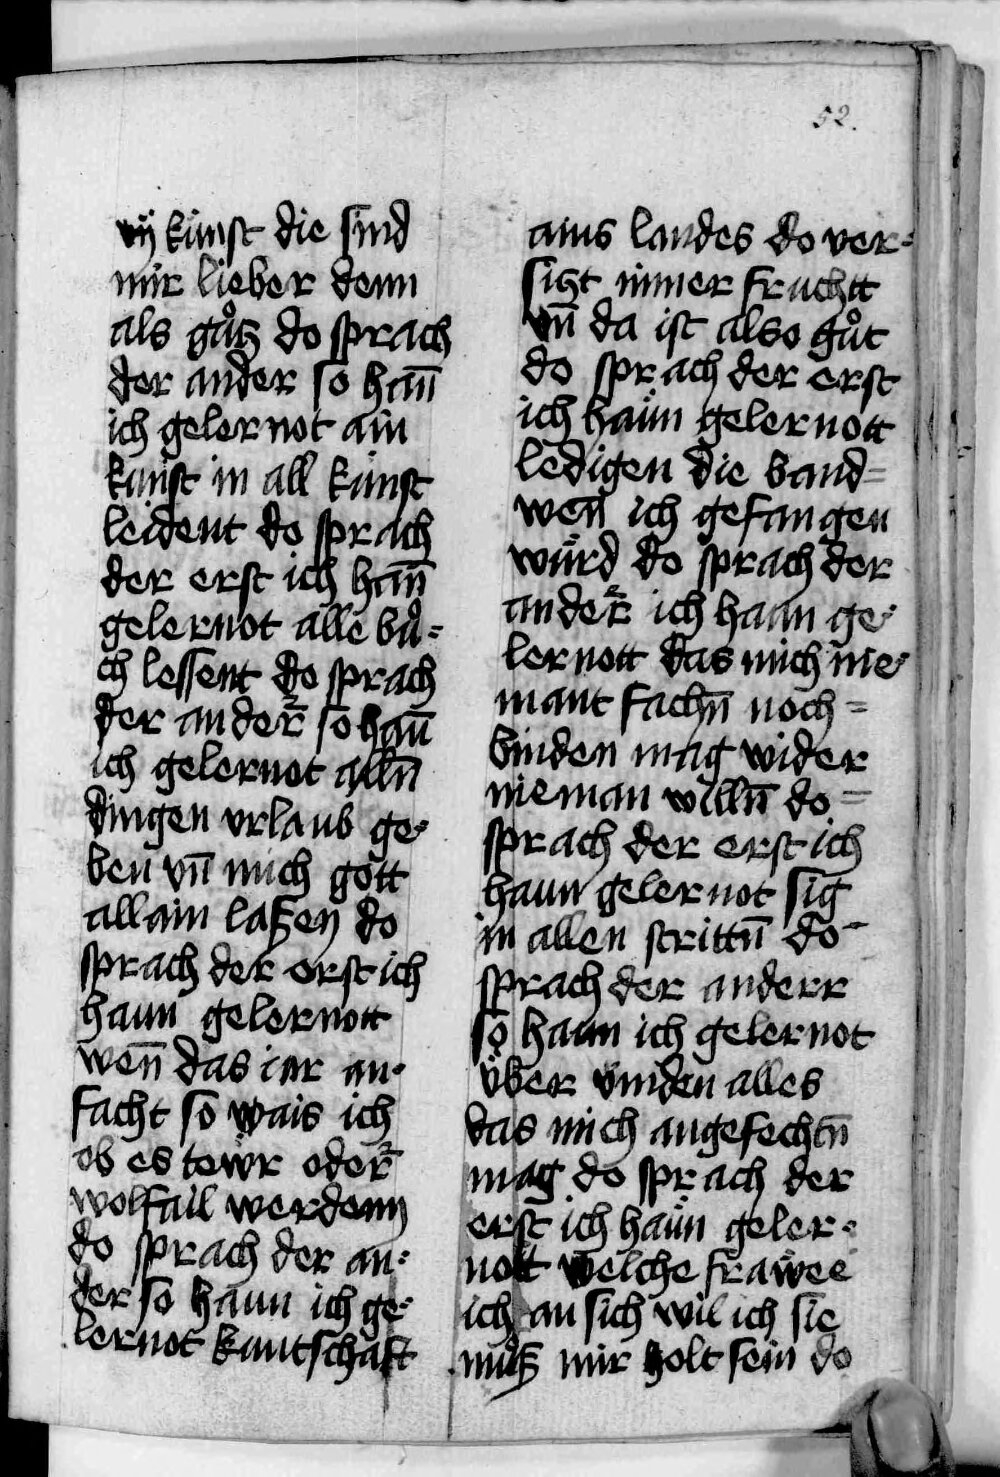 52.
vij kúnst die sind
mir lieber denn
als gůtz do sprach
der ander so han̄
ich gelernot ain
kunst in all kúnst
leident do sprach
der erst ich han̄
gelernot alle bů=
ch lessent do sprach
der ander so han̄
ich gelernot alln̄
dingen vrlaub ge=
ben vn̄ mich gott
allain laßen do
sprach der erst ich
haun gelernott
wen̄ das iar an=
facht so wais ich
ob es tewr oder
wolfail werdenn
do sprach der an=
der so haun ich ge=
lernot kantschaft
ains landes do ver=
sigt nimer fruchtt
vn̄ da ist also gůt
do sprach der erst
ich haun gelernott
ledigen die band=
wen̄ ich gefangen
würd do sprach der
ander ich haan ge=
lernott das mich nie=
mant fachn̄ noch=
binden mag wider
nieman willn̄ do=
sprach der erst ich
haun gelernot sig
in allen scrittn̄ do
sprach der anderr
so haun ich gelernot
über vinden alles
das mich angefechtn̄
mag do sprach der
erst ich haun geler=
nott welche frawee
ich an sich wil ich sie
můß mir holt sein do